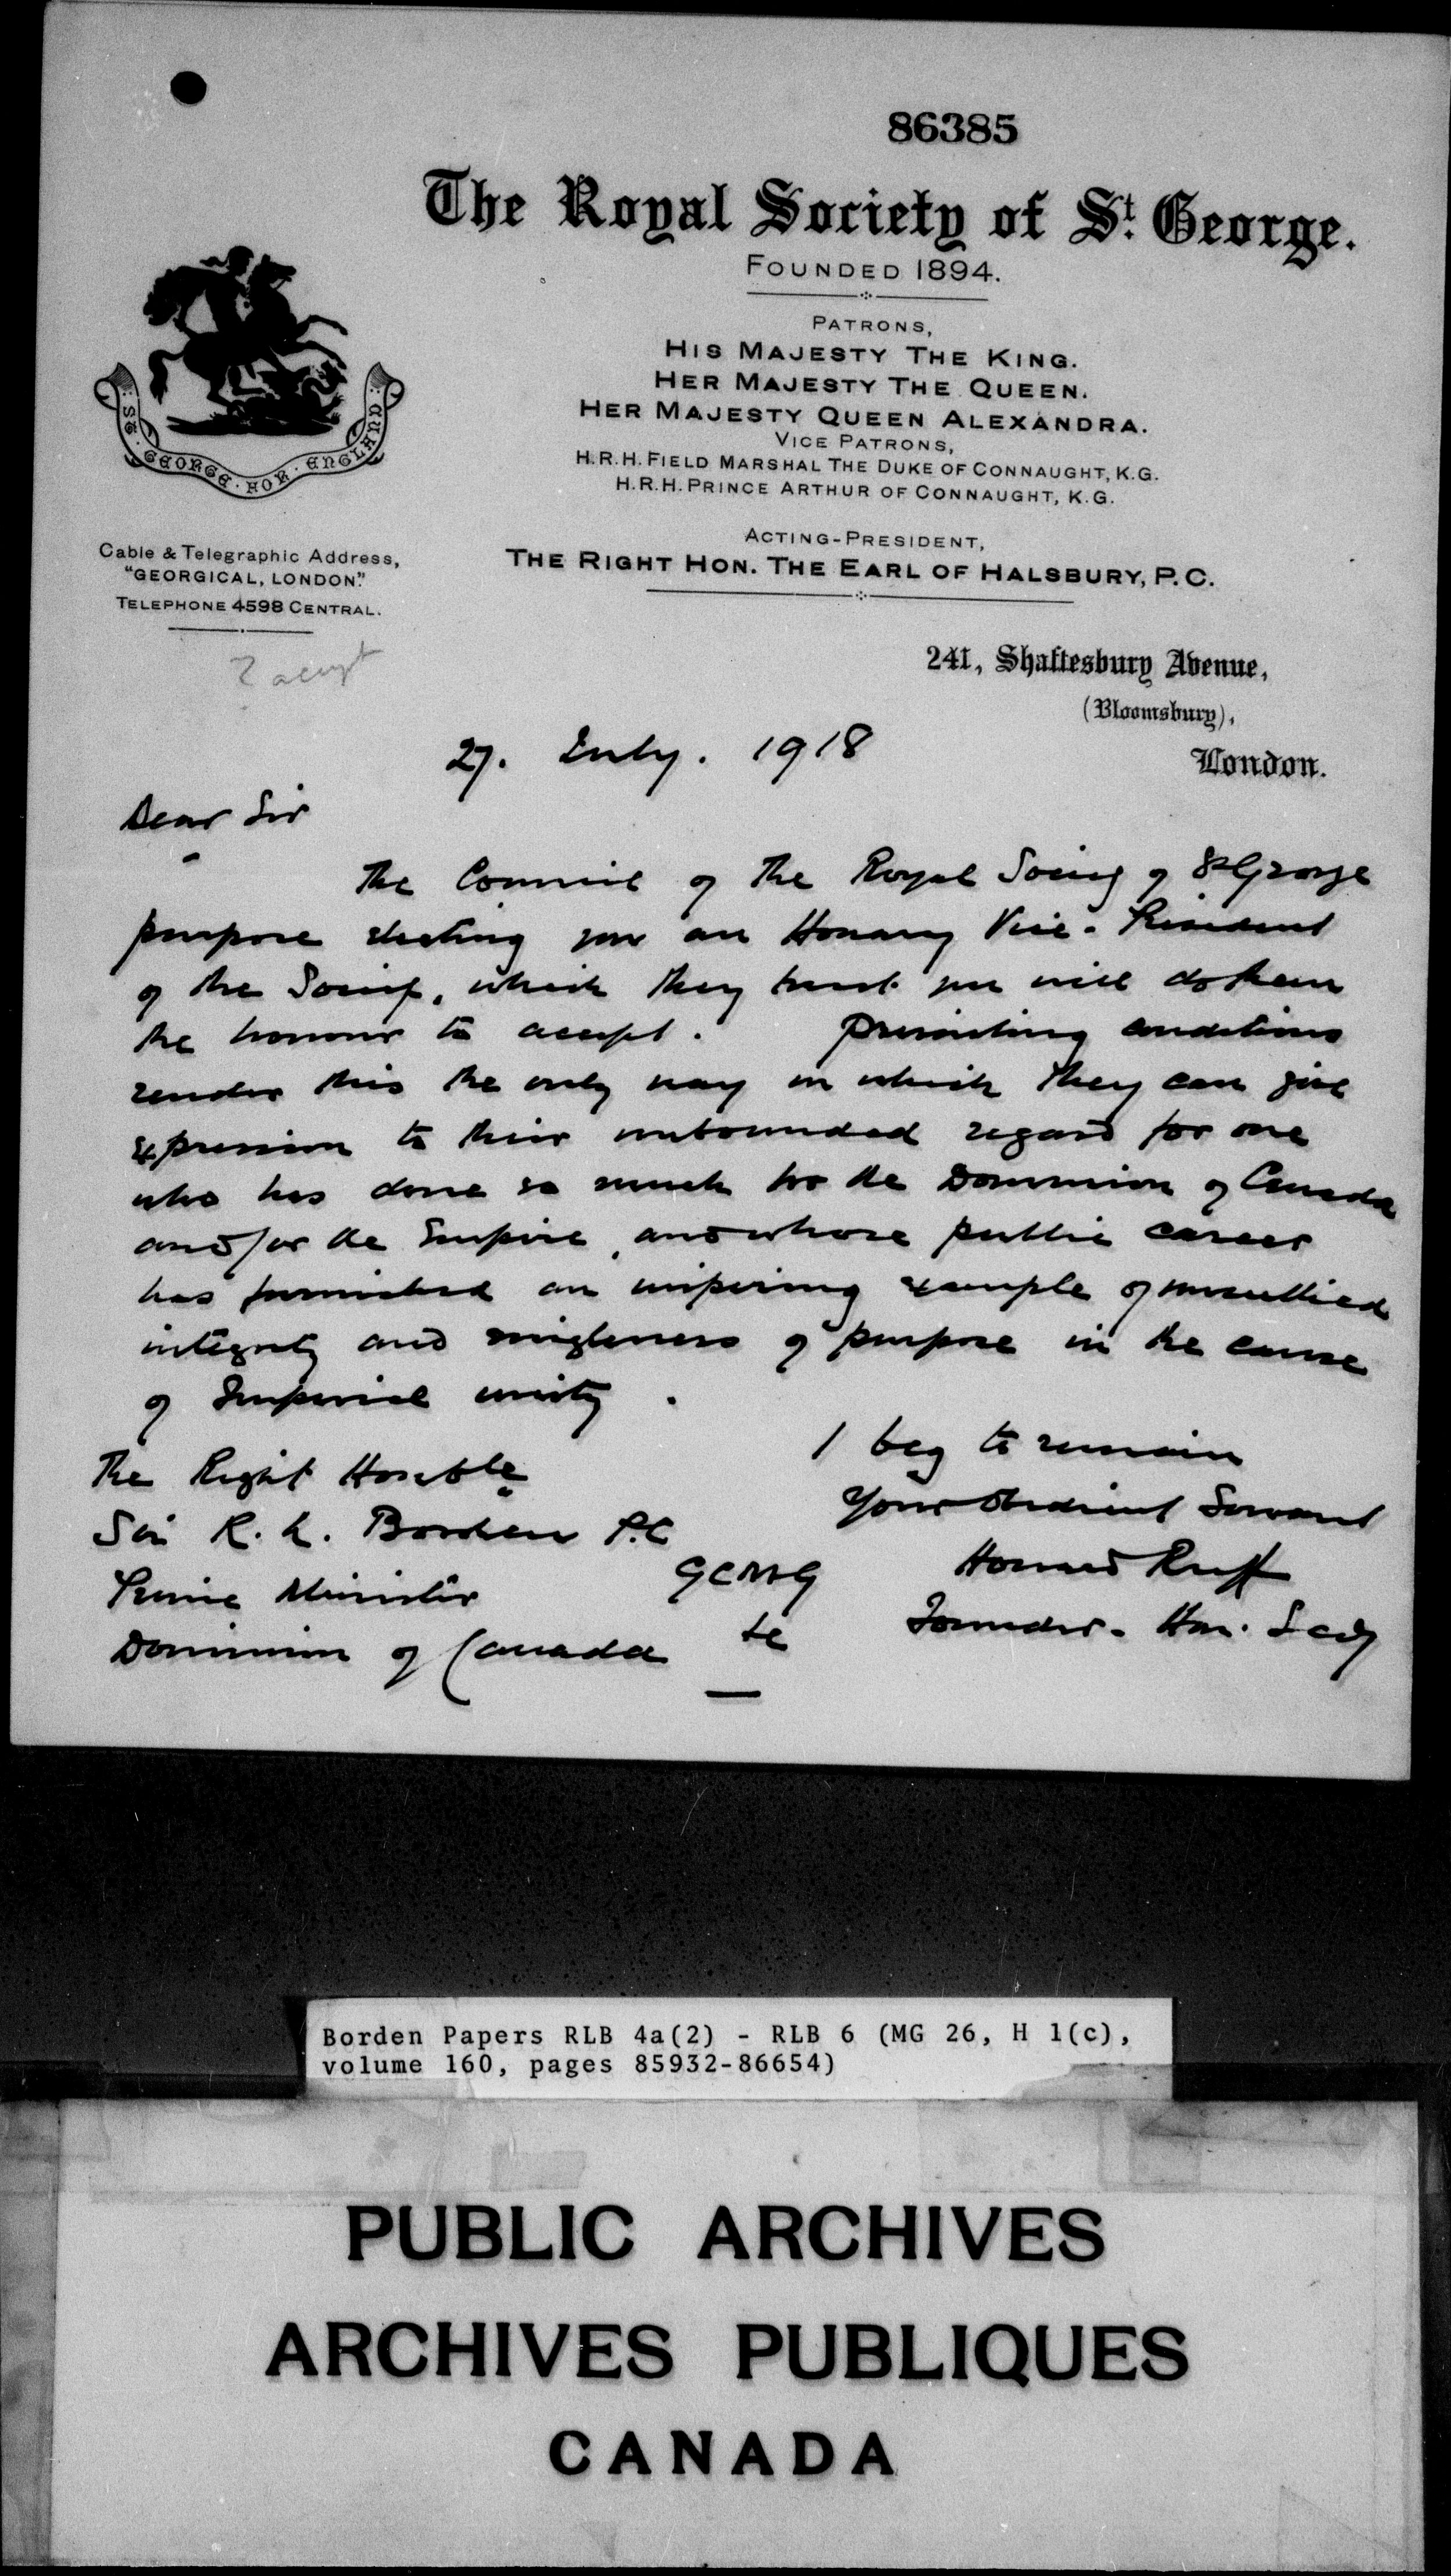 86385
The Royal Society of St. George.
FOUNDED 1894.
PATRONS,
HIS MAJESTY THE KING.
HER MAJESTY THE QUEEN.
HER MAJESTY QUEEN ALEXANDRA.
VICE PATRONS,
H.R.H. FIELD MARSHAL THE DUKE OF CONNAUGHT, K.G.
H.R.H. PRINCE ARTHUR OF CONNAUGHT, K.G.
ACTING-PRESIDENT,
THE RIGHT HON. THE EARL OF HALSBURY, P.C.
ST. GEORGE · FOR · ENGLAND:
Cable & Telegraphic Address,
"GEORGICAL, LONDON."
TELEPHONE 4598 CENTRAL.
? accept
241, Shaftesbury Avenue,
(Bloomsbury),
London.
27. July. 1918
Dear Sir
The Council of the Royal Society of St George
purpose electing you an Honary Vice-President
of the Society, which they trust you will do them
the honour to accept. Prevailing conditions
render this the only way in which they can give
expression to their unbounded regard for one
who has done so much for the Dominion of Canada
and for the Empire, and whose public career
has furnished an inspiring example of unsullied
integrity and singleness of purpose in the cause
of Imperial unity.
I beg to remain
Your obedient Servant
Howard Ruff
Founder. Hon. Secy
The Right Honble
Sir R. L. Borden P.C
GCMG
Prime Minister
&c
Dominion of Canada
Borden Papers RLB 4a(2) - RLB 6 (MG 26, H 1(c),
volume 160, pages 85932-86654)
PUBLIC ARCHIVES
ARCHIVES PUBLIQUES
CANADA